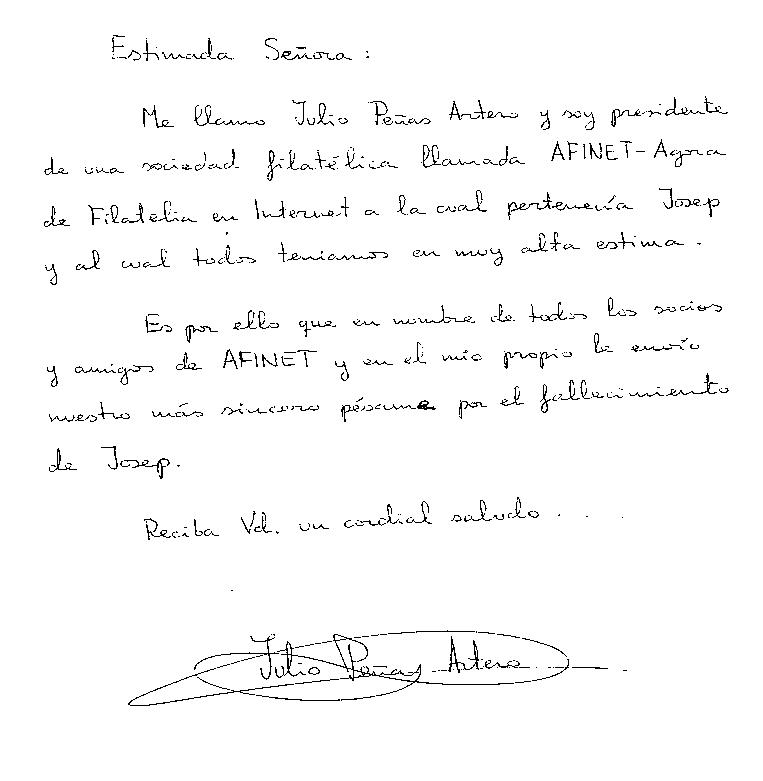 Estimada Señora :
Me llamo Julio Peñas Artero y soy presidente
de una sociedad filatélica llamada AFINET-Agora
de Filatelia en Internet a la cual pertenecía Josep
y al cual todos teniamos en muy alta estima.
Es por ello que en nombre de todos los socios
y amigos de AFINET y en el mío propio le envío
nuestro más sincero pésame por el fallecimiento
de Josep.
Reciba Vd. un cordial saludo . . .
Julio Peñas Artero